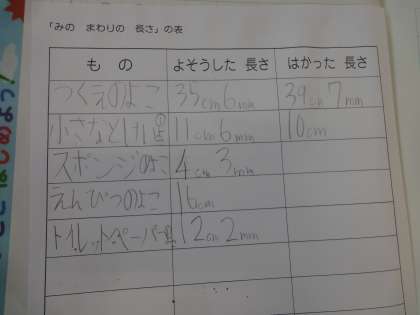 「みの まわりの 長さ」の表
もの よそうした 長さ はかった 長さ
つくえのよこ 35cm6mm 39cm7mm
小さなとけい 11cm6mm 10cm
スポンジのよこ 4cm 3mm
えんぴつのよこ 16cm
トイレットペーパー 12cm 2mm